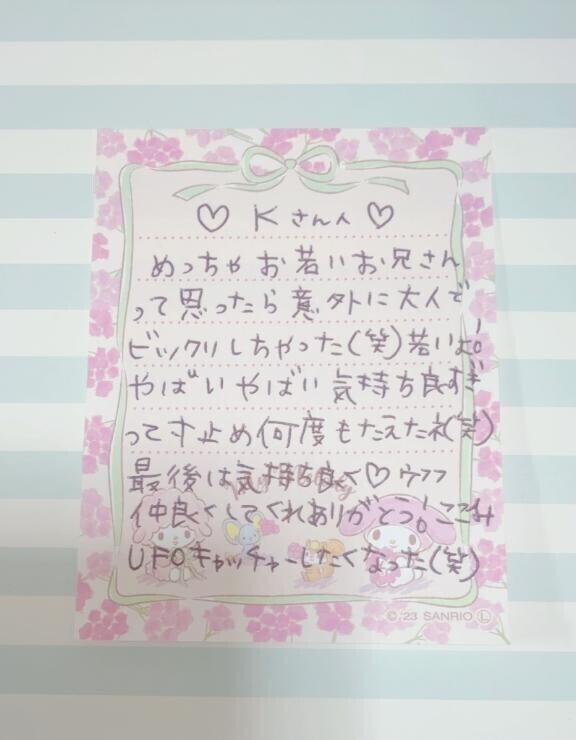 ♡ Kさんへ ♡
めっちゃお若いお兄さん
って思ったら意外に大人で
ビックリしちゃった(笑)若いよー。
やばいやばい 気持ち良すぎ
って寸止め何度もたえたネ(笑)
最後は気持ち良く♡ウフフ
仲良くしてくれありがとう!ここみ
UFOキャッチャーしたくなった(笑)
© '23 SANRIO Ⓛ